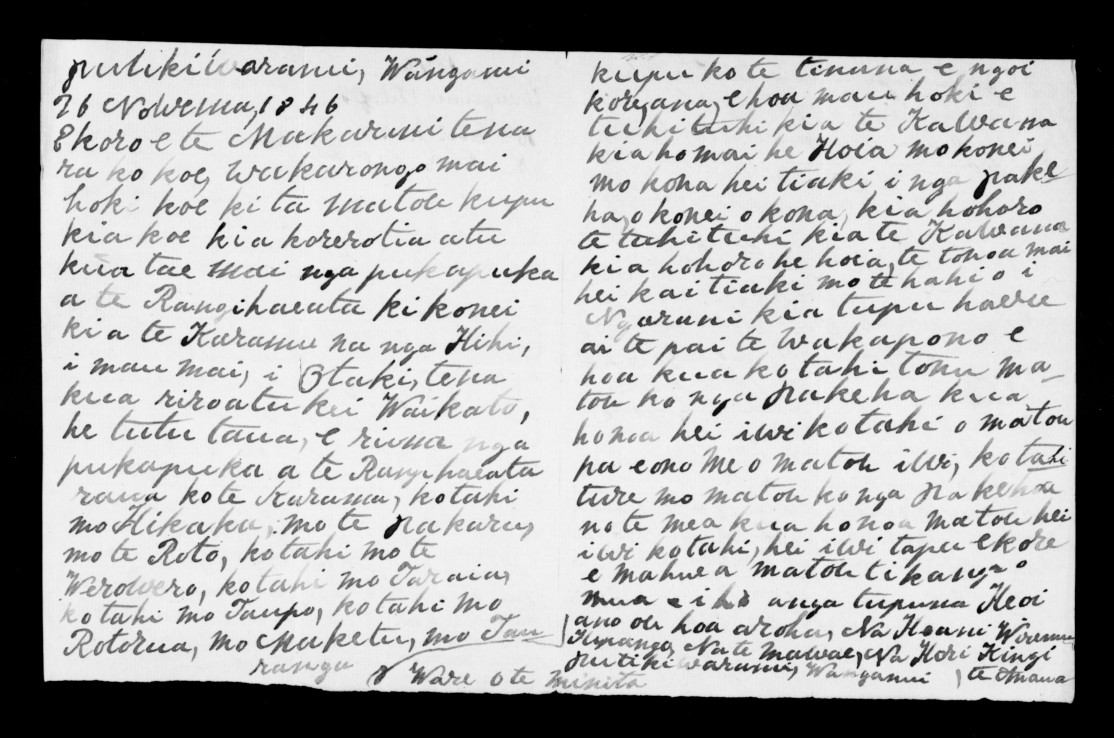 Putikiwaranui, Wanganui
26 Nowema, 1846
E koro e te Makarini tena
ra ko koe, wakarongo mai
hoki koe ki ta matou kupu
kia koe kia korerotia atu
kua tae mai nga pukapuka
a te Rangihaeata ki konei
kia te Karamu na nga Hihi,
i mau mai, i Otaki, tena
kua riro atu kei Waikato,
he tutu taua, e rima nga
pukapuka a te Rangihaeata
raua ko te Karama, kotahi
mo Hikaka, mo te pakaru,
mo te Roto, kotahi mo te
Werowero, kotahi mo Taraia,
kotahi mo Taupo, kotahi mo
Rotorua, mo Maketu, mo Tau
ranga
Ware o te minita
kupu ko te tinana e ngoi
kore ana, e hoa mau hoki e
tuhituhi kia te Kawana
kia homai he Hoia mo konei,
mo kona hei tiaki i nga pake
ha, o konei o kona, kia hohoro
te tuhituhi kia te Kawana
kia hohoro he hoia, te tonoa mai
hei kai tiaki mo te hahi o i
Ngarani kia tupu haere
ai te pai te wakapono e
hoa kua kotahi tonu ma-
tou ko nga pakeha kua
honoa hei iwi kotahi o matou
pa e ono me o matou iwi, kotahi
ture mo matou ko nga pakeha
no te mea kua honoa matou hei
iwi kotahi, hei iwi tapu ekore
e mahue a matou tikanga o
mua a nga tupuna Heoi
ano ou hoa aroha, Na Hoani Wiremu
Hipango, Na te mawae, Na Hori Kingi
Putikiwaranui, Wanganui, te Anaua